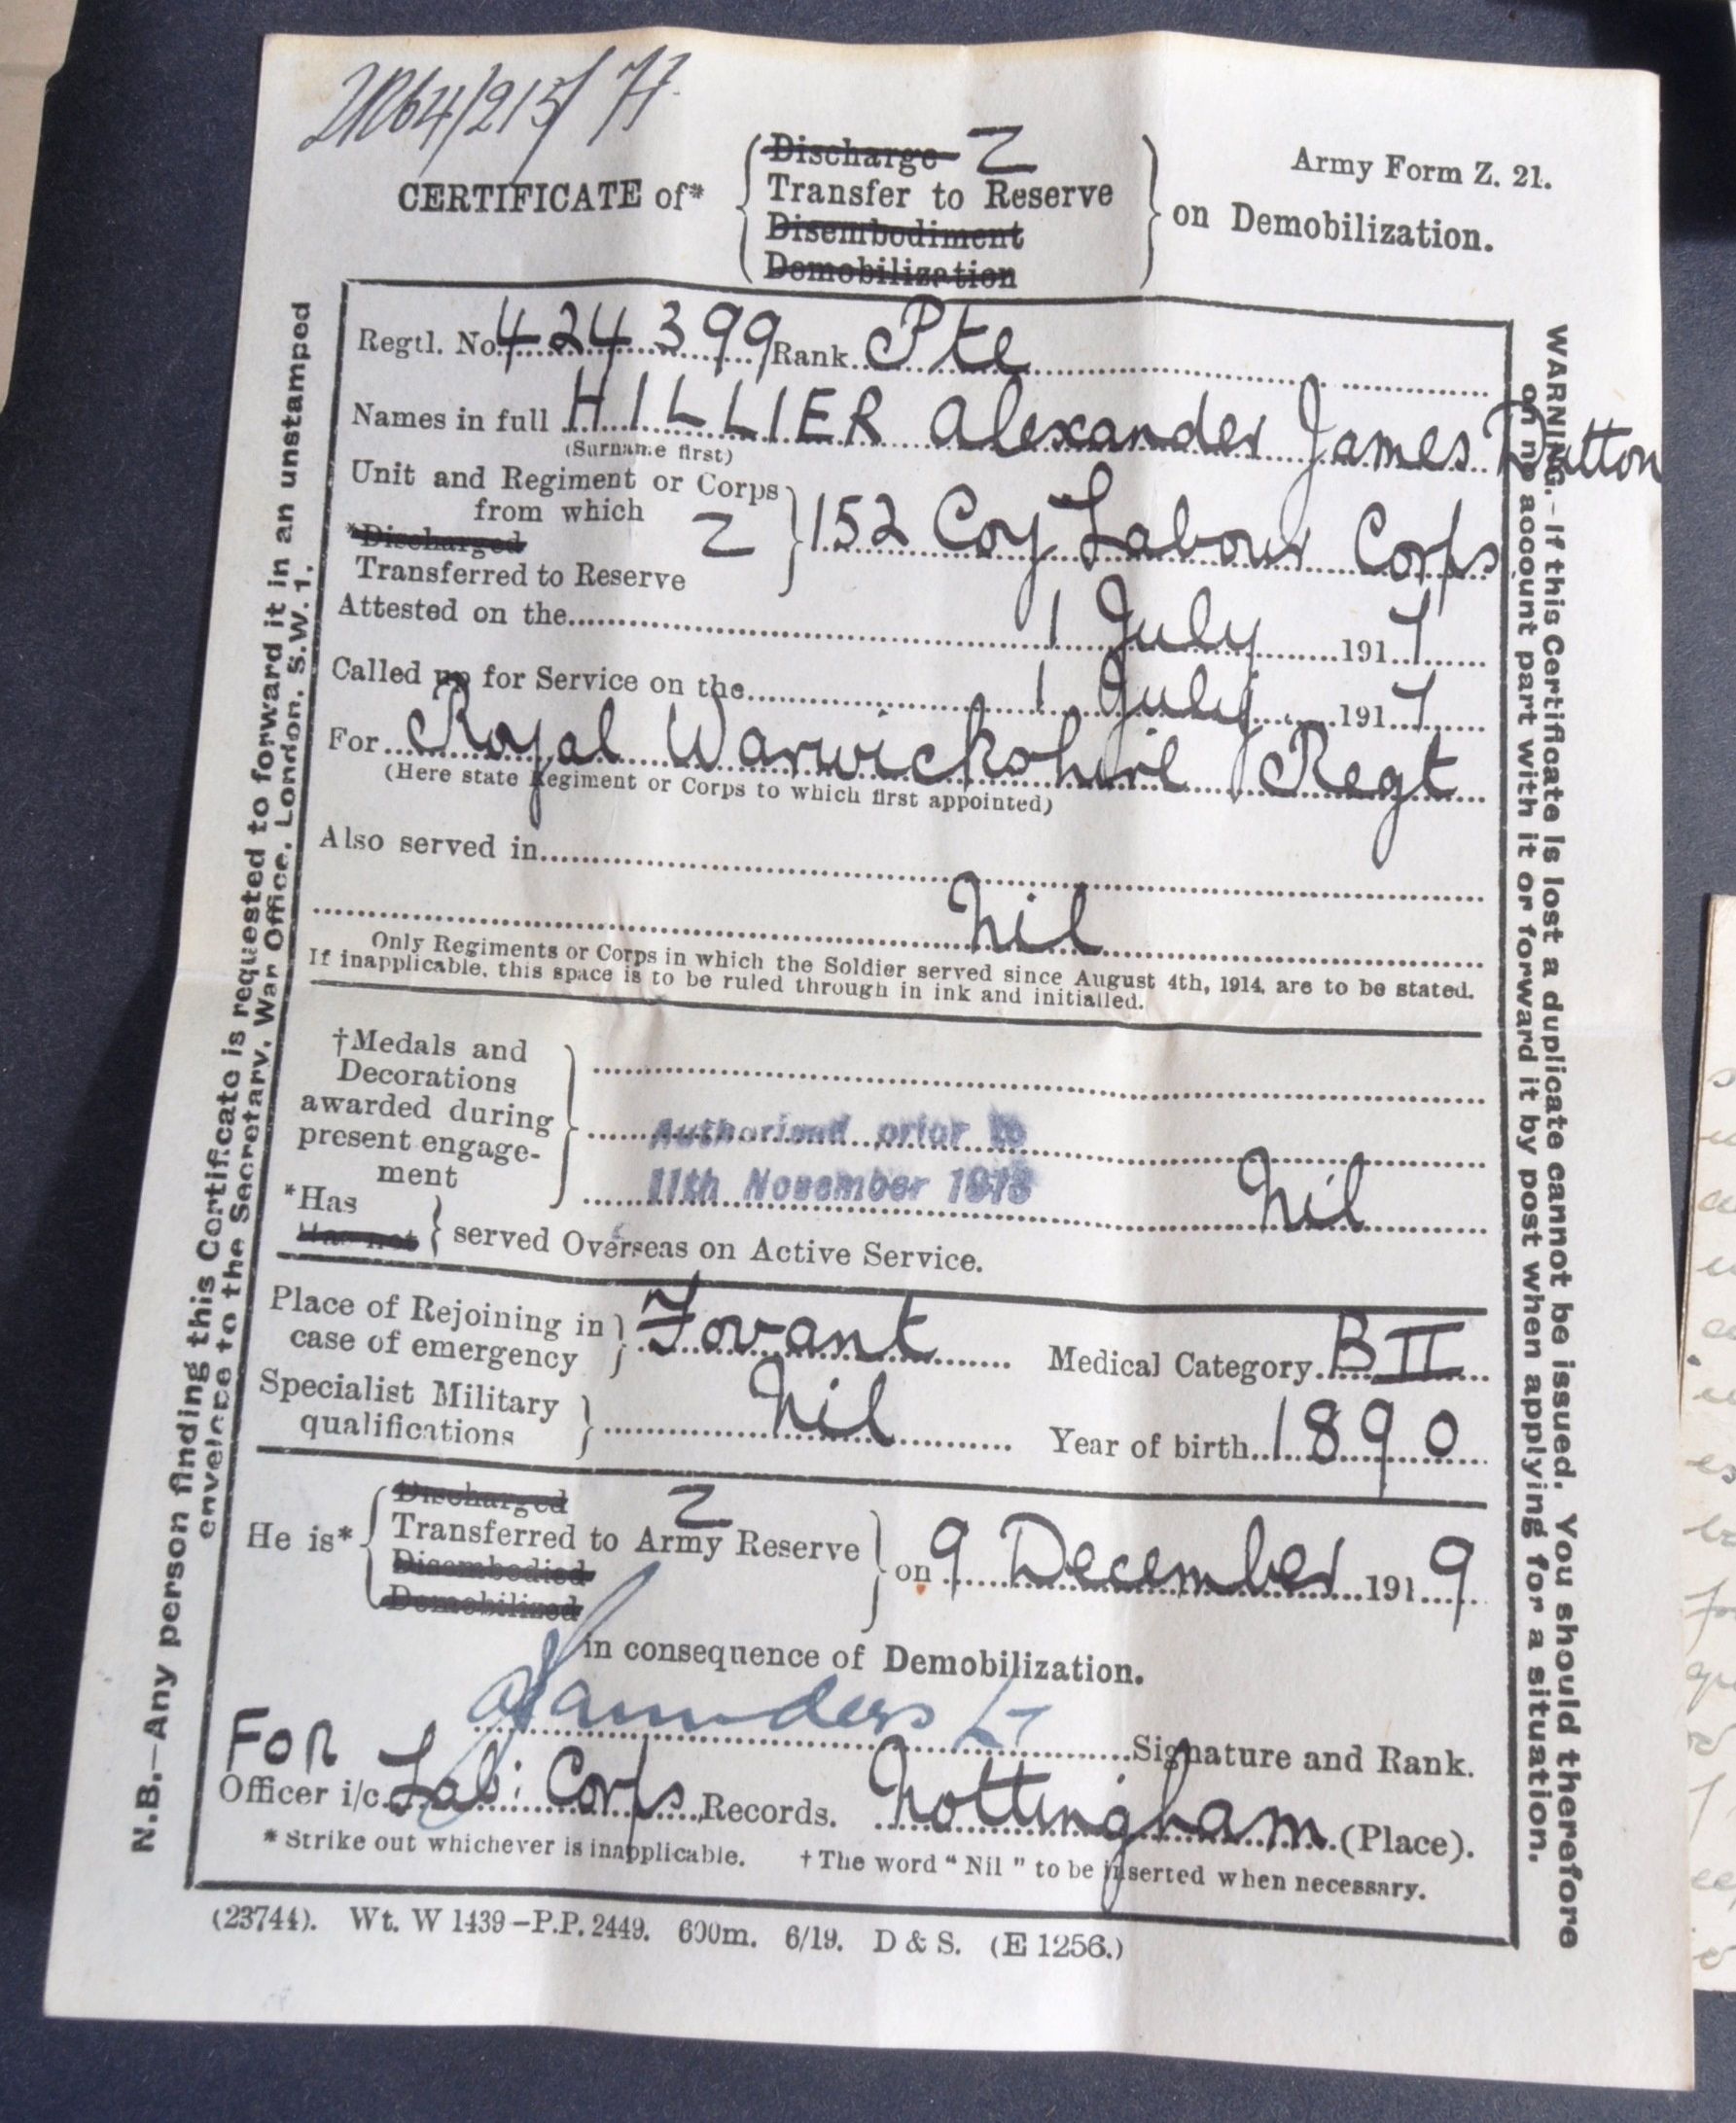 Army Form Z. 21.
CERTIFICATE of* { Discharge Z
Transfer to Reserve
Disembodiment
Demobilization } on Demobilization.
Regtl. No. 424399 Rank Pte
Names in full HILLIER Alexander James Dutton
(Surname first)
Unit and Regiment or Corps
from which
*Discharged Z
Transferred to Reserve } 152 Coy Labour Corps
Attested on the 1 July 1917
Called up for Service on the 1 July 1917
For Royal Warwickshire Regt
(Here state Regiment or Corps to which first appointed)
Also served in
Nil
Only Regiments or Corps in which the Soldier served since August 4th, 1914, are to be stated.
If inapplicable, this space is to be ruled through in ink and initialled.
†Medals and
Decorations
awarded during
present engage-
ment
Authorised prior to
11th November 1918 Nil
*Has
Has not } served Overseas on Active Service.
Place of Rejoining in
case of emergency } Fovant Medical Category BII
Specialist Military
qualifications } Nil Year of birth 1890
He is* { Discharged Z
Transferred to Army Reserve
Disembodied
Demobilized } on 9 December 1919
in consequence of Demobilization.
Saunders Lt Signature and Rank.
For
Officer i/c Lab: Corps Records. Nottingham (Place).
* Strike out whichever is inapplicable. † The word “ Nil ” to be inserted when necessary.
(23744). Wt. W 1439—P.P. 2449. 600m. 6/19. D & S. (E 1256.)
N.B.—Any person finding this Certificate is requested to forward it in an unstamped
envelope to the Secretary, War Office, London, S.W. 1.
WARNING.—If this Certificate is lost a duplicate cannot be issued. You should therefore
on no account part with it or forward it by post when applying for a situation.